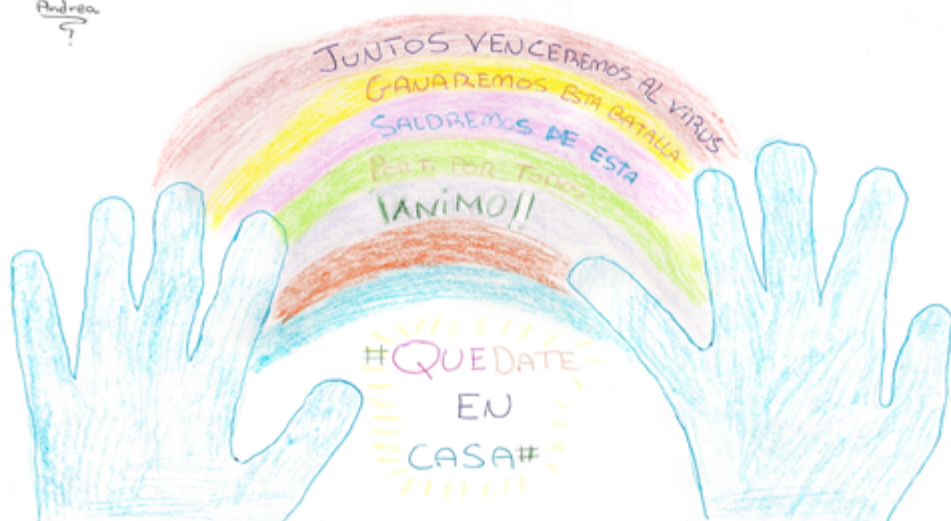 Andrea
JUNTOS VENCEREMOS AL VIRUS
GANAREMOS ESTA BATALLA
SALDREMOS DE ESTA
POR TI POR TODOS
¡ANIMO!!
#QUEDATE
EN
CASA#